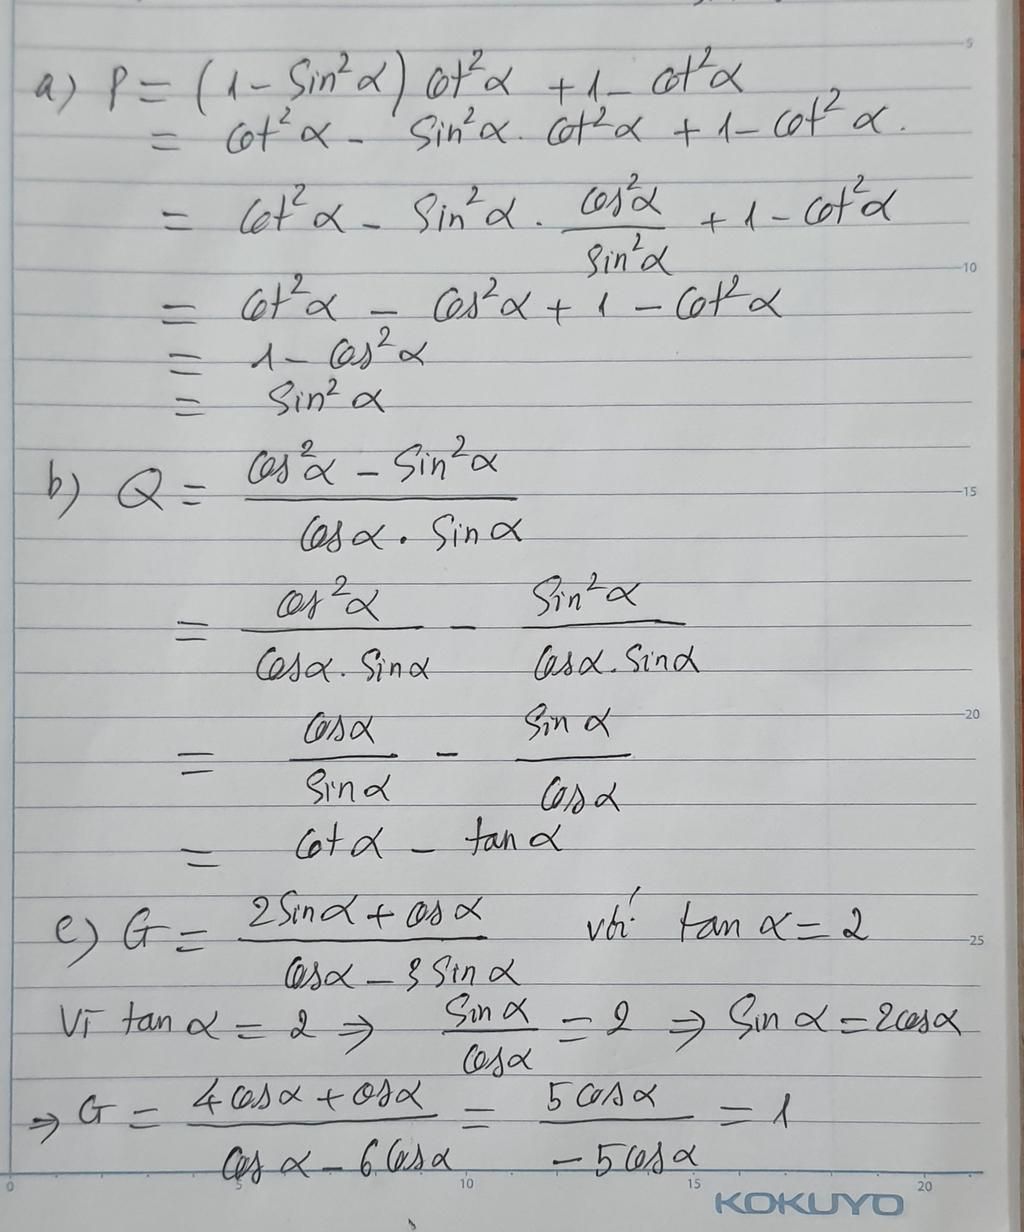 a) P = (1 - Sin²α) Cot²α + 1 - Cot²α
= Cot²α - Sin²α . Cot²α + 1 - Cot²α.
= Cot²α - Sin²α . Cos²α / Sin²α + 1 - Cot²α
= Cot²α - Cos²α + 1 - Cot²α
= 1 - Cos²α
= Sin²α
b) Q = (Cos²α - Sin²α) / (Cosα . Sinα)
= Cos²α / (Cosα . Sinα) - Sin²α / (Cosα . Sinα)
= Cosα / Sinα - Sinα / Cosα
= Cotα - tanα
e) G = (2Sinα + Cosα) / (Cosα - 3Sinα) với tanα = 2
Vì tanα = 2 ⇒ Sinα / Cosα = 2 ⇒ Sinα = 2cosα
⇒ G = (4Cosα + Cosα) / (Cosα - 6Cosα) = 5Cosα / -5Cosα = 1
5
10
15
20
25
0 5 10 15 20
KOKUYO